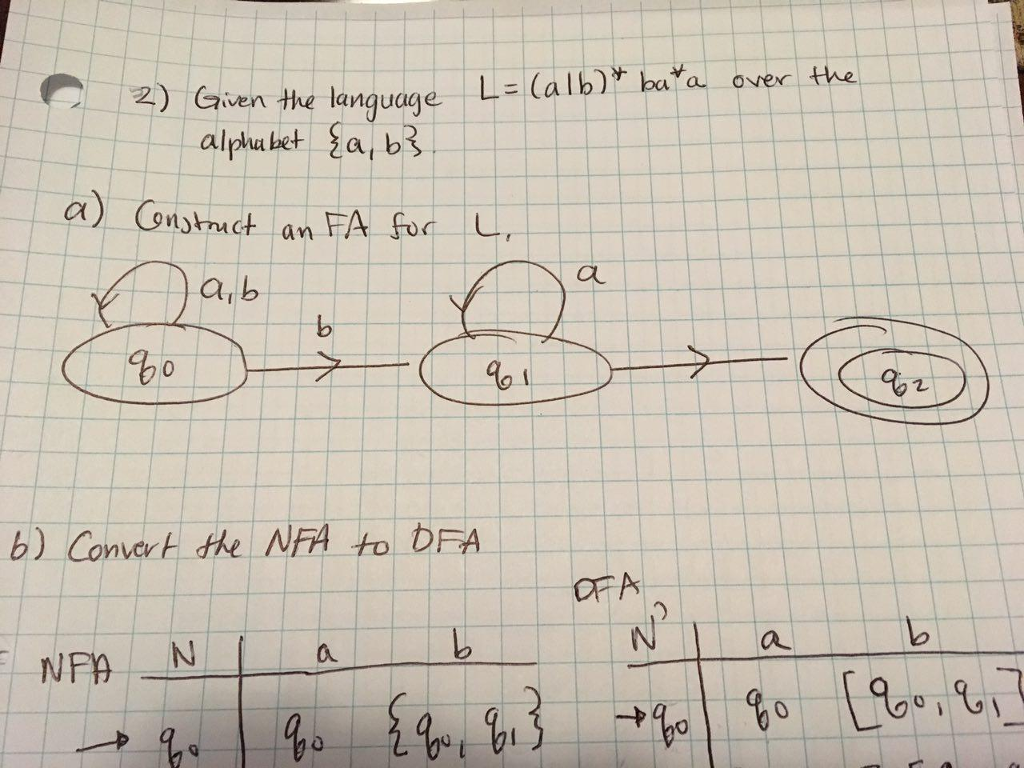 2) Given the language L = (a|b)* ba*a over the
alphabet {a, b}.
a) Construct an FA for L.
a, b
a
b
q0
q1
q2
b) Convert the NFA to DFA
DFA
NFA N a b
N' a b
→ q0 q0 {q0, q1}
→ q0 q0 [q0, q1]